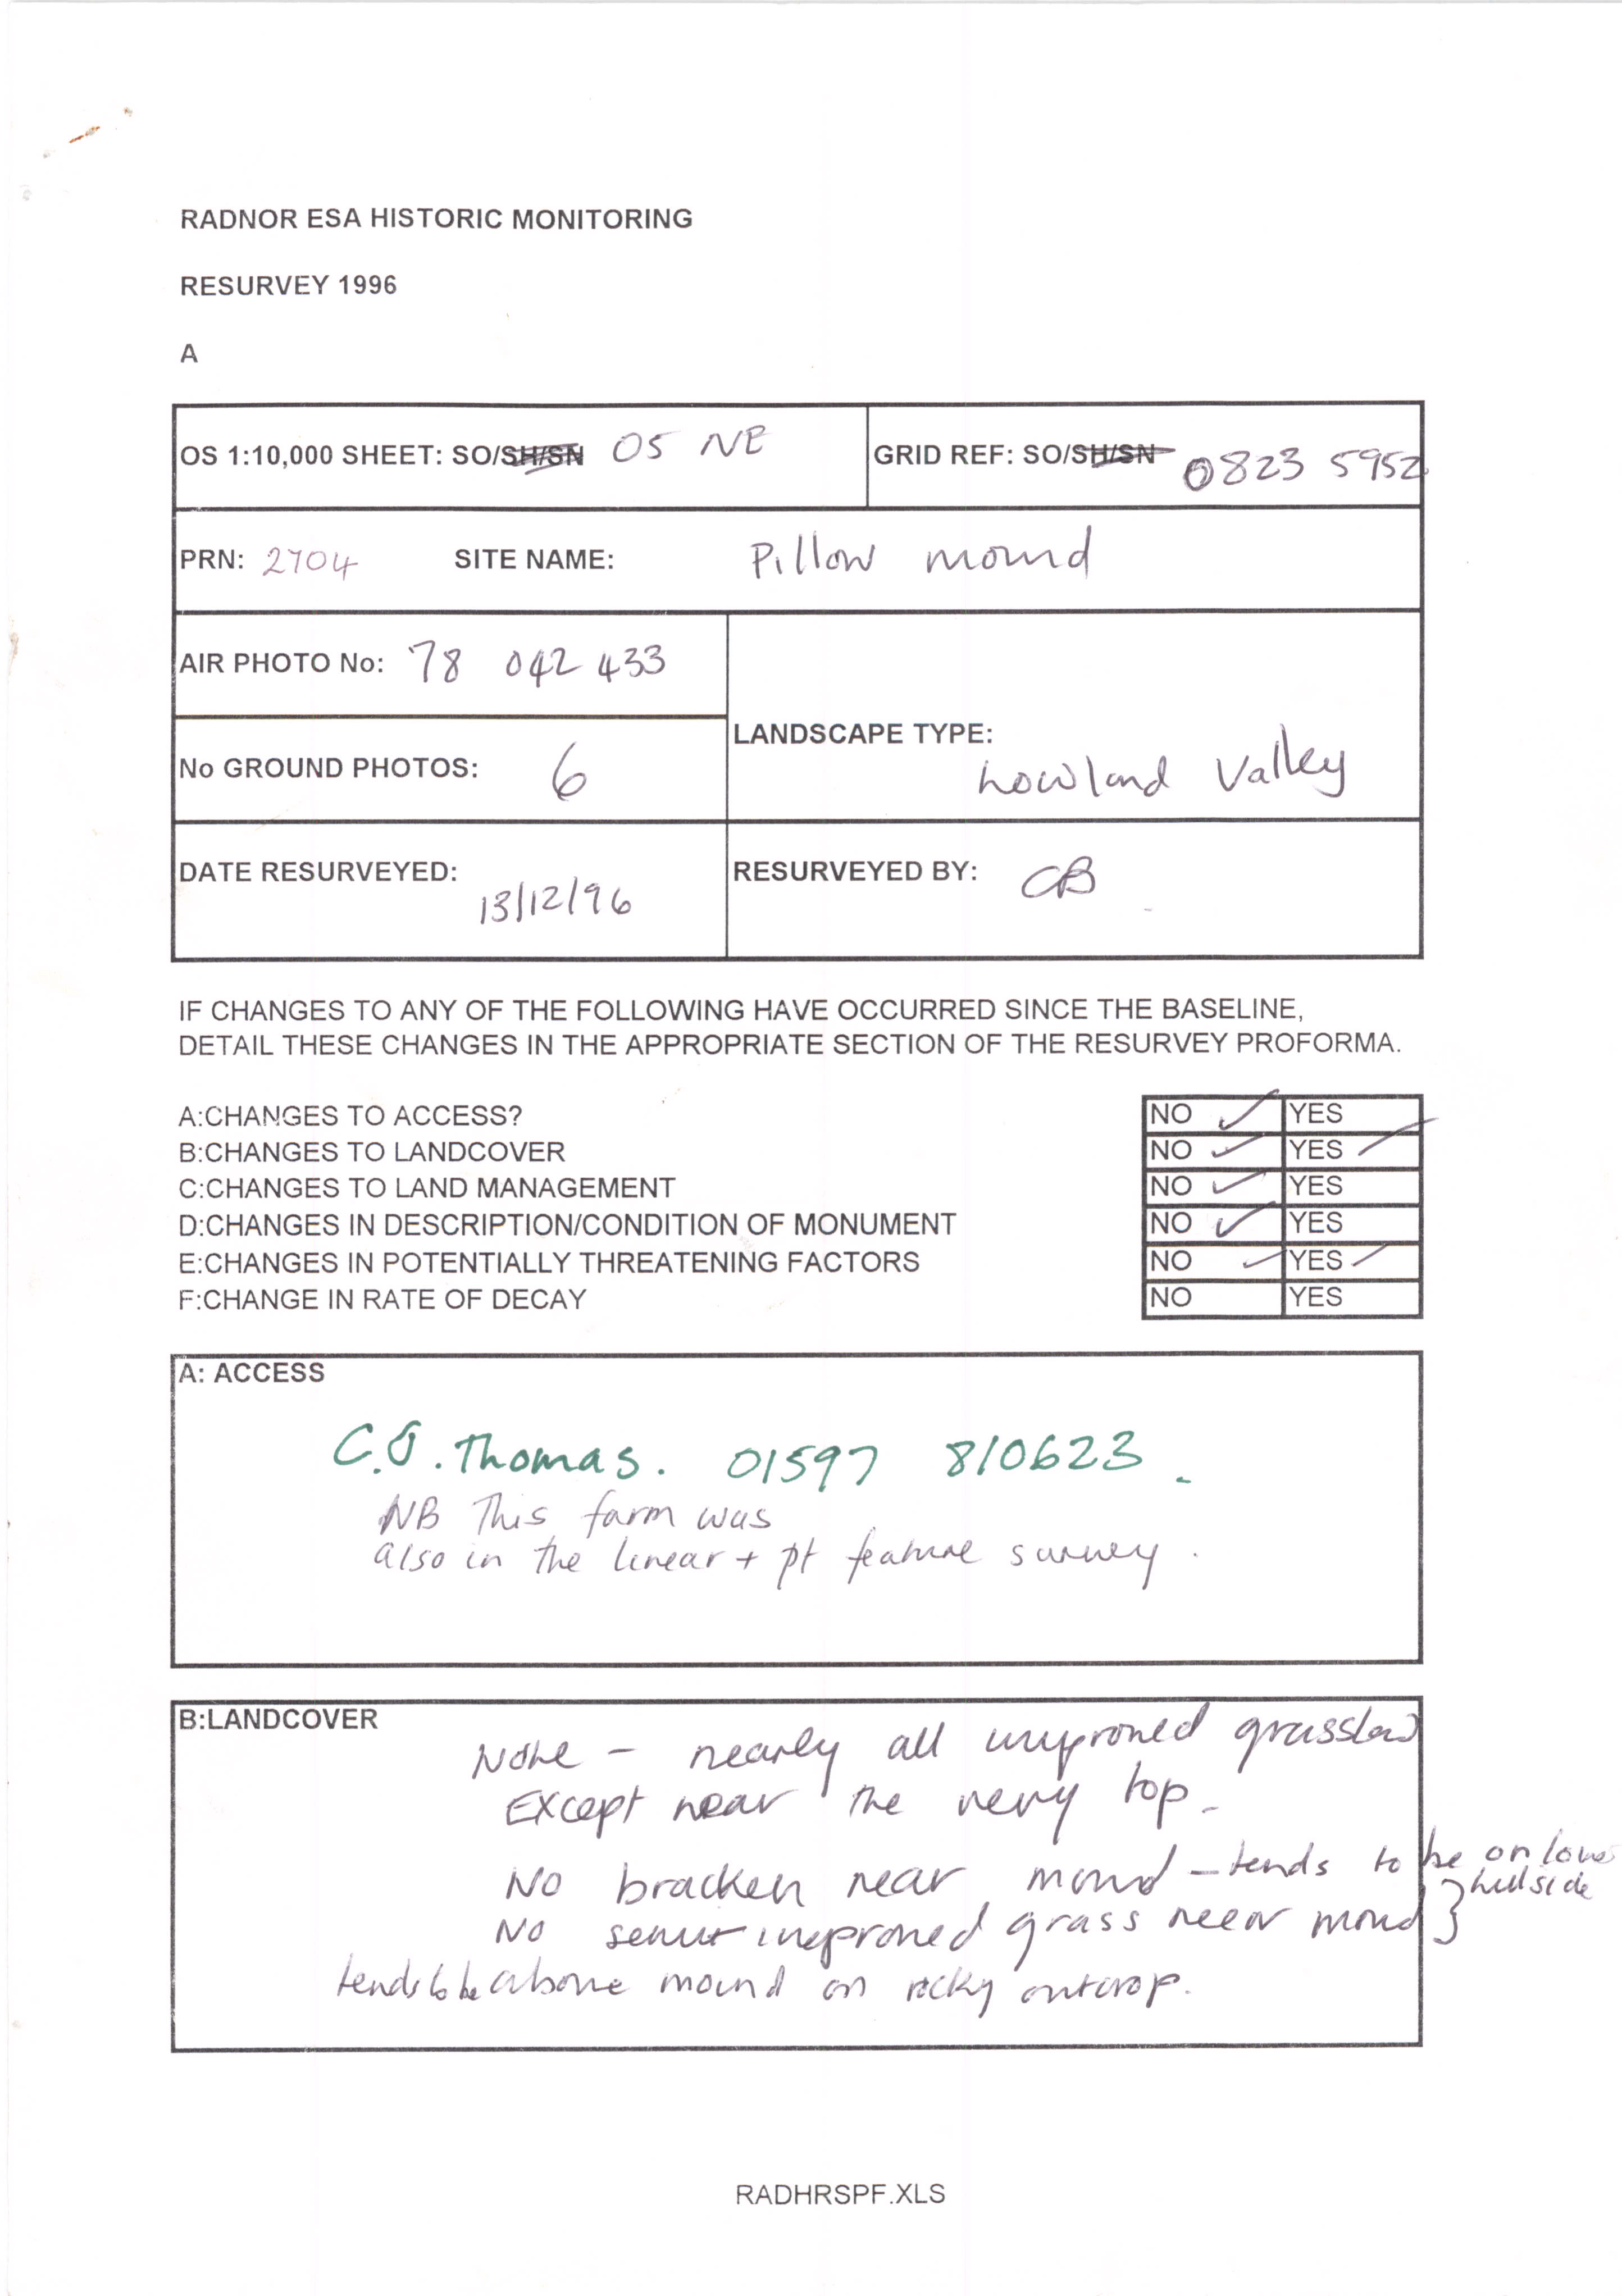 RADNOR ESA HISTORIC MONITORING
RESURVEY 1996
A
OS 1:10,000 SHEET: SO/SH/SN 05 NE
GRID REF: SO/SH/SN 0823 5952
PRN: 2704 SITE NAME: Pillow mound
AIR PHOTO No: 78 042 433
No GROUND PHOTOS: 6
LANDSCAPE TYPE:
Lowland Valley
DATE RESURVEYED:
13/12/96
RESURVEYED BY: CB
IF CHANGES TO ANY OF THE FOLLOWING HAVE OCCURRED SINCE THE BASELINE,
DETAIL THESE CHANGES IN THE APPROPRIATE SECTION OF THE RESURVEY PROFORMA.
A:CHANGES TO ACCESS? NO ✓ YES
B:CHANGES TO LANDCOVER NO ✓ YES
C:CHANGES TO LAND MANAGEMENT NO ✓ YES
D:CHANGES IN DESCRIPTION/CONDITION OF MONUMENT NO ✓ YES
E:CHANGES IN POTENTIALLY THREATENING FACTORS NO ✓ YES
F:CHANGE IN RATE OF DECAY NO YES
A: ACCESS
C.J. Thomas. 01597 810623.
NB This farm was
also in the linear + pt feature survey.
B:LANDCOVER
None - nearly all improved grassland
Except near the very top.
No bracken near mound - tends to be on lower
hillside
No semi-improved grass near mound }
tends to be above mound on rocky outcrop.
RADHRSPF.XLS